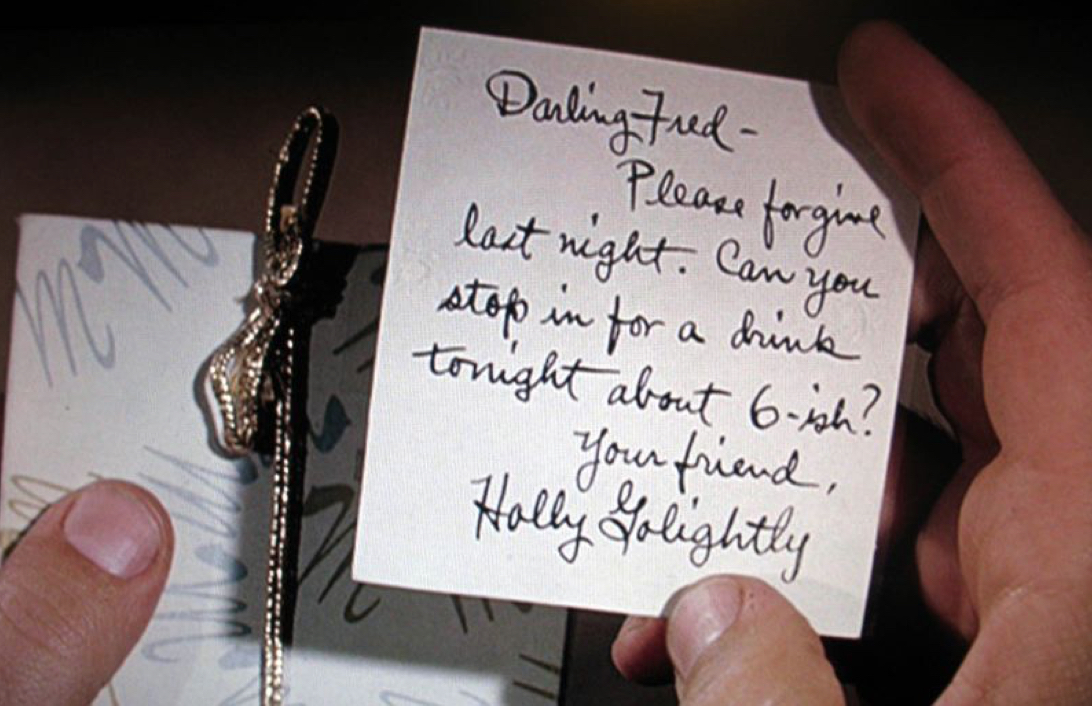 Darling Fred -
Please forgive
last night. Can you
stop in for a drink
tonight about 6-ish?
Your friend,
Holly Golightly